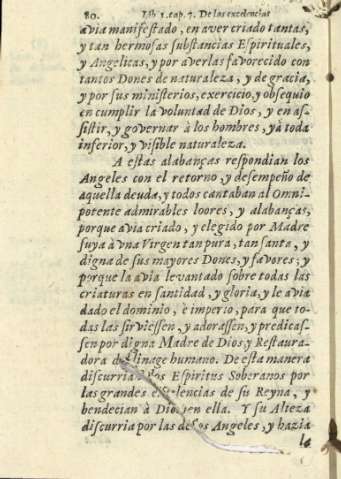 80. Lib 1. cap. 7. De las excelencias
avia manifestado, en aver criado tantas,
y tan hermosas substancias Espirituales,
y Angelicas, y por averlas favorecido con
tantos Dones de naturaleza, y de gracia,
y por sus ministerios, exercicio, y obsequio
en cumplir la voluntad de Dios, y en as-
sistir, y governar à los hombres, y à toda
inferior, y visible naturaleza.
A estas alabanças respondian los
Angeles con el retorno, y desempeño de
aquella deuda, y todos cantaban al Omni-
potente admirables loores, y alabanças,
porque avia criado, y elegido por Madre
suya à vna Virgen tan pura, tan santa, y
digna de sus mayores Dones, y favores; y
porque la avia levantado sobre todas las
criaturas en santidad, y gloria, y le avia
dado el dominio, è imperio, para que to-
das las sirviessen, y adorassen, y predicas-
sen por digna Madre de Dios, y Restaura-
dora linage humano. De esta manera
discurria Espiritus Soberanos por
las grandes de su Reyna, y
bendecian à en ella. Y su Alteza
discurria por las de los Angeles, y hazia
la